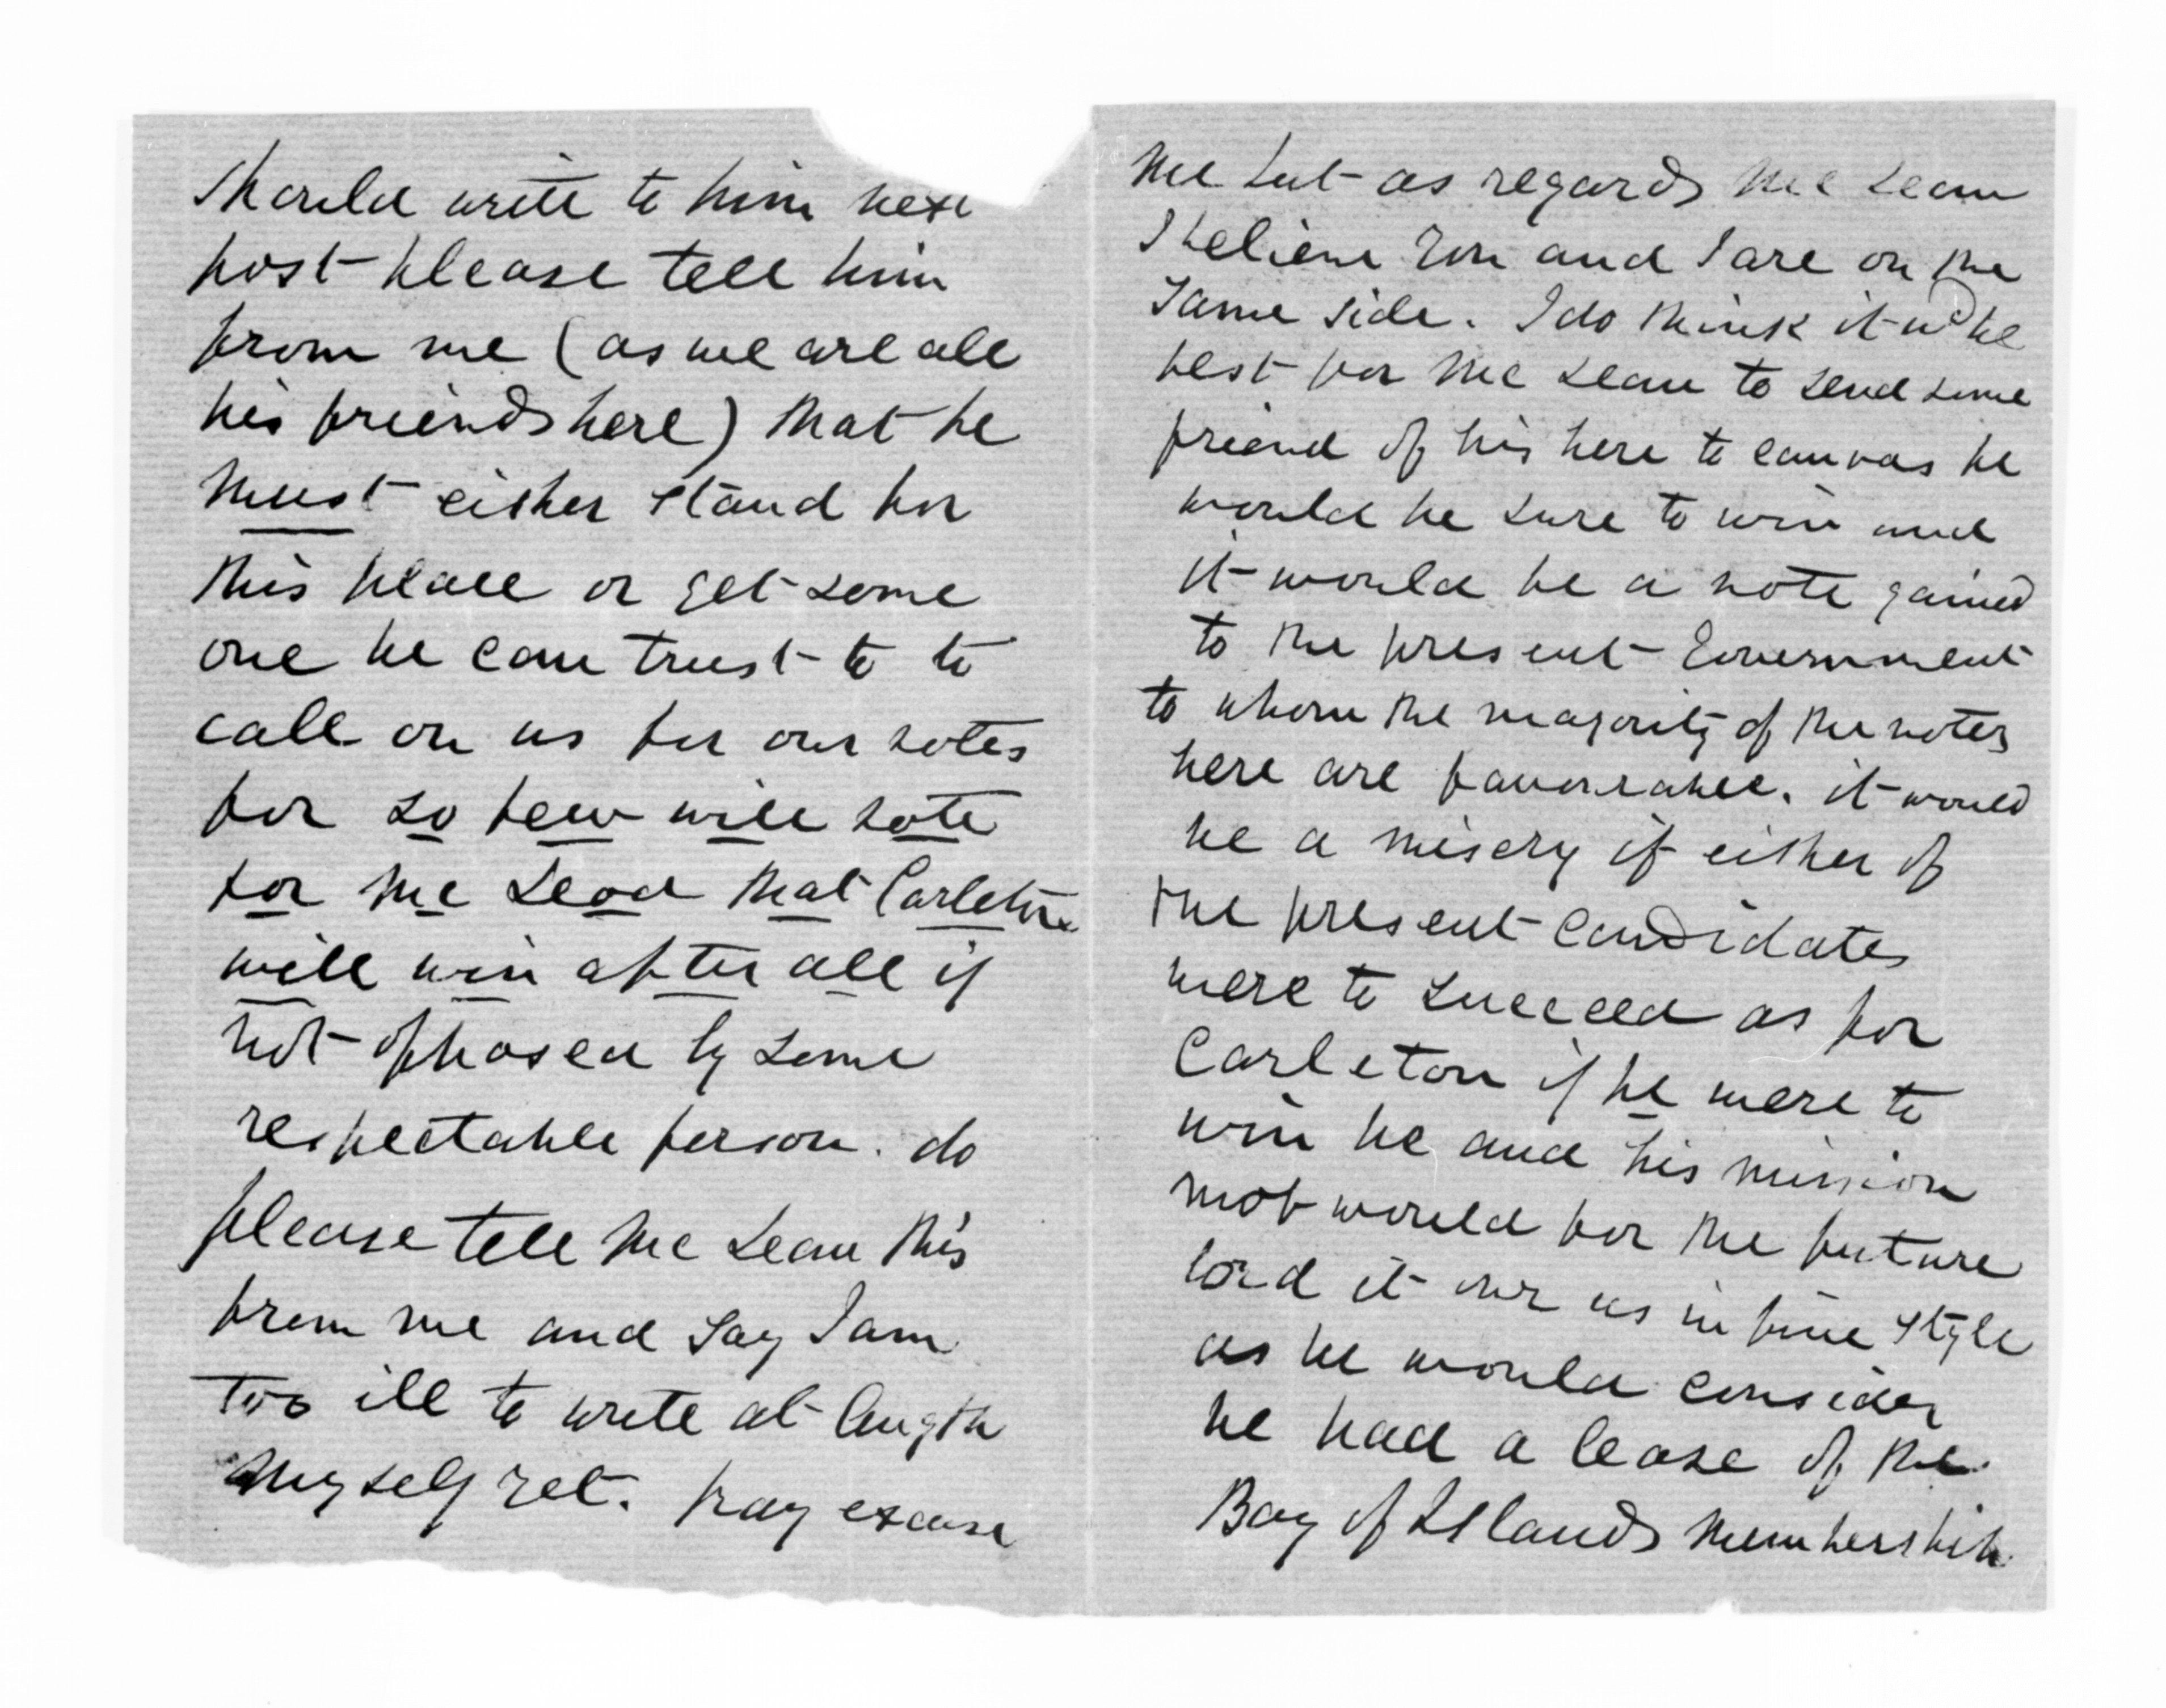 should write to him next
post please tell him
from me (as we are all
his friends here) that he
must either stand for
this place or get some
one he can trust to to
call on us for our votes
for so few will vote
for Mc Leod that Carleton
will win after all if
not opposed by some
respectable person. do
please tell Mc Lean this
from me and say I am
too ill to write at length
myself yet. pray excuse
me but as regards Mc Lean
I believe you and I are on the
same side. I do think it wd be
best for Mc Lean to send some
friend of his here to canvas he
would be sure to win and
it would be a vote gained
to the present Government
to whom the majority of the votes
here are favourable. it would
be a misery if either of
the present candidates
were to succeed as for
Carleton if he were to
win he and his mission
mob would for the future
lord it over us in fine style
as he would consider
he had a lease of the
Bay of Islands Membership.